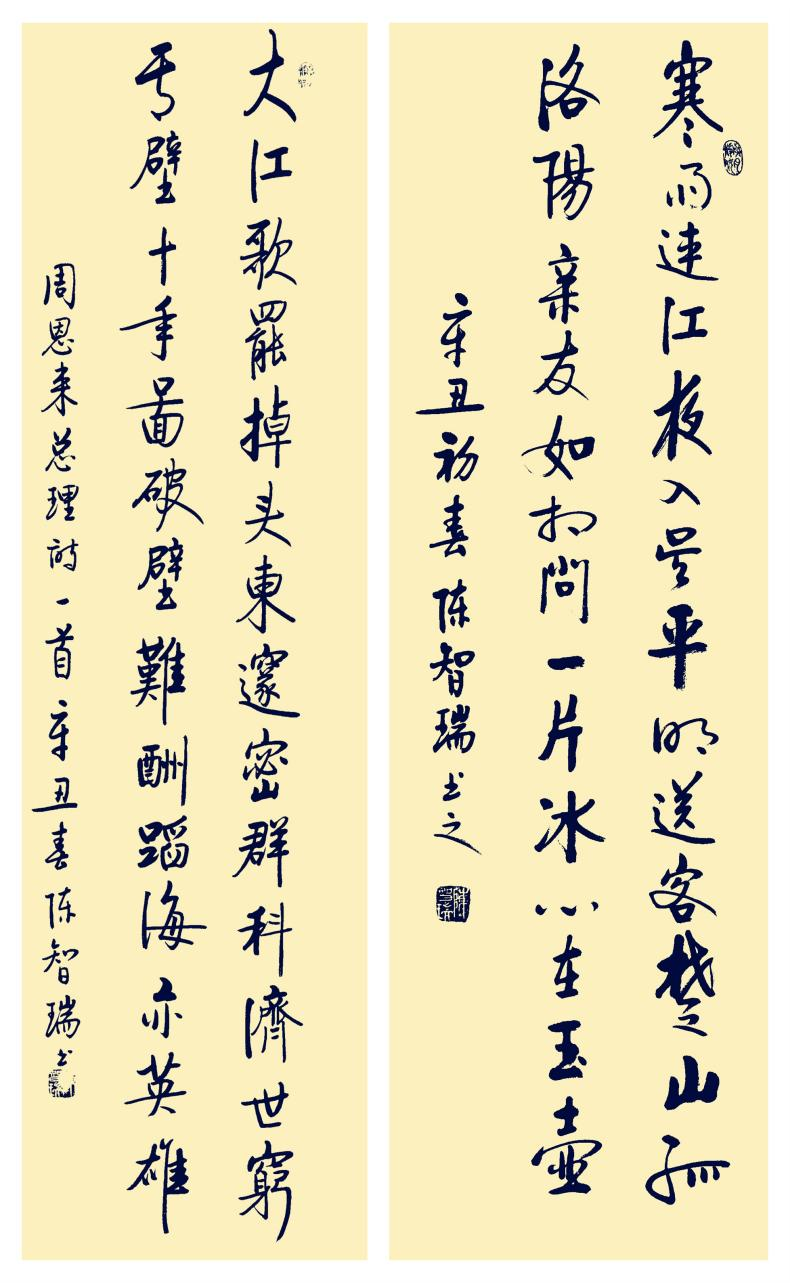 寒雨連江夜入吴平明送客楚山孤
洛陽亲友如相問一片冰心在玉壺
辛丑初春陈智瑞书之
大江歌罷掉头東邃密群科濟世窮
面壁十年圖破壁難酬蹈海亦英雄
周恩来总理詩一首辛丑春陈智瑞书